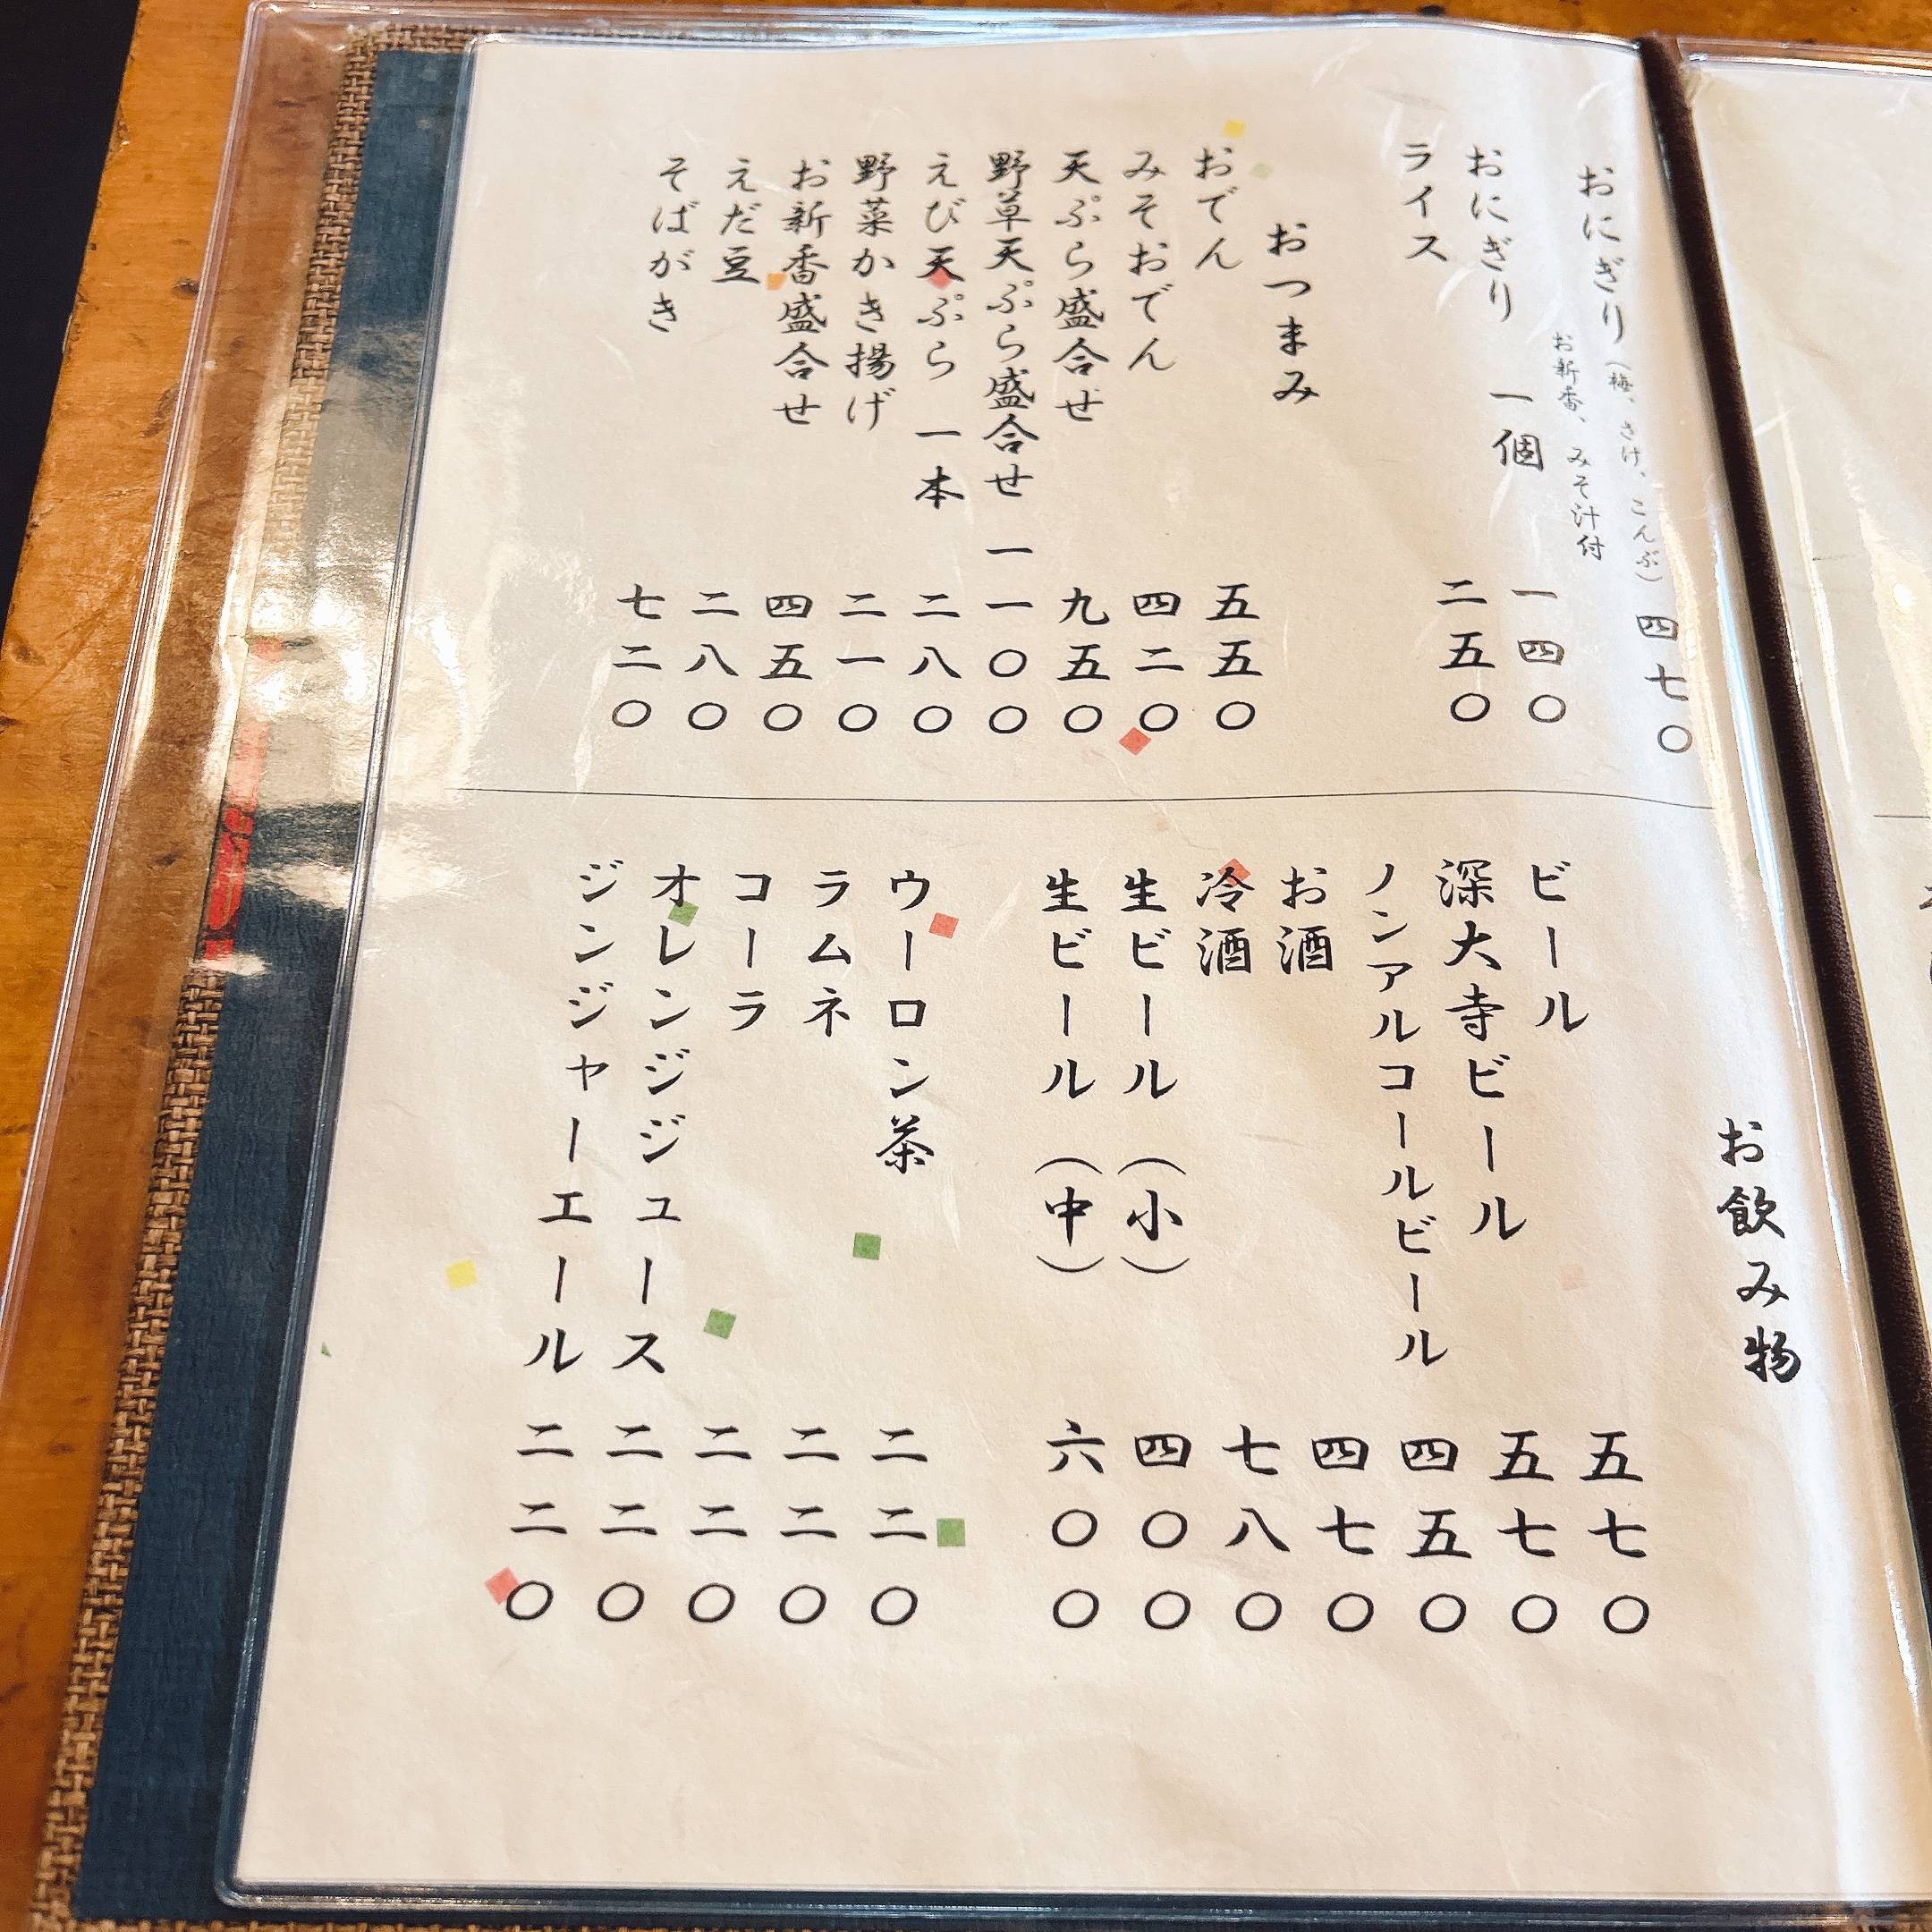 おにぎり（梅、さけ、こんぶ） 四七〇
お新香、みそ汁付
おにぎり 一個 一四〇
ライス 二五〇
おつまみ
おでん 五五〇
みそおでん 四二〇
天ぷら盛合せ 九五〇
野草天ぷら盛合せ 一一〇〇
えび天ぷら 一本 二八〇
野菜かき揚げ 二一〇
お新香盛合せ 四五〇
えだ豆 二八〇
そばがき 七二〇
お飲み物
ビール 五七〇
深大寺ビール 五七〇
ノンアルコールビール 四五〇
お酒 四七〇
冷酒 七八〇
生ビール（小） 四〇〇
生ビール（中） 六〇〇
ウーロン茶 二二〇
ラムネ 二二〇
コーラ 二二〇
オレンジジュース 二二〇
ジンジャーエール 二二〇